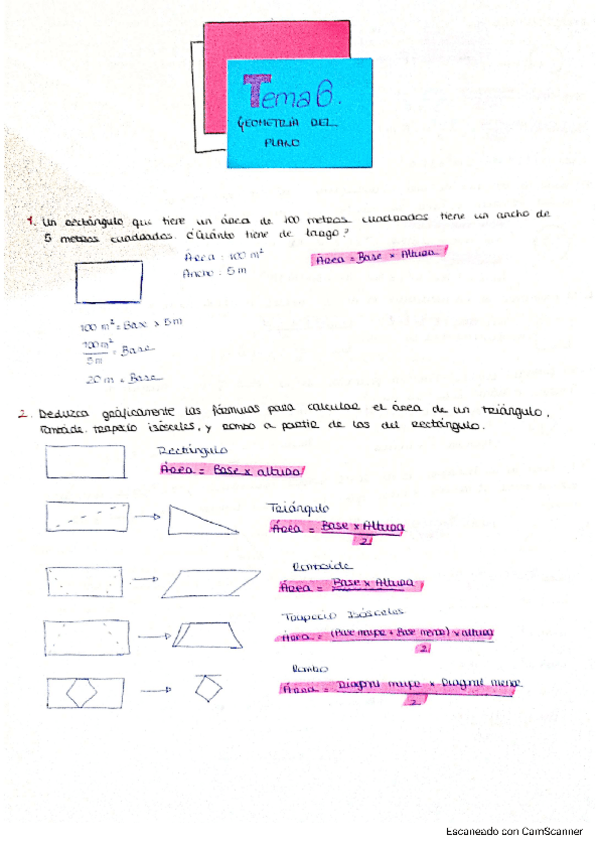 Tema 6.
GEOMETRÍA DEL
PLANO
1. Un rectángulo que tiene un área de 100 metros cuadrados tiene un ancho de
5 metros cuadrados. ¿Cuánto tiene de largo?
Área : 100 m²
Ancho : 5 m
Área = Base x Altura
100 m² = Base x 5 m
100 m² / 5 m = Base
20 m = Base
2. Deduzca gráficamente las fórmulas para calcular el área de un triángulo,
romboide, trapecio isósceles, y rombo a partir de las del rectángulo.
Rectángulo
Área = Base x altura
Triángulo
Área = Base x Altura / 2
Romboide
Área = Base x Altura
Trapecio Isósceles
Área = (Base mayor + Base menor) x altura / 2
Rombo
Área = Diagonal mayor x Diagonal menor / 2
Escaneado con CamScanner